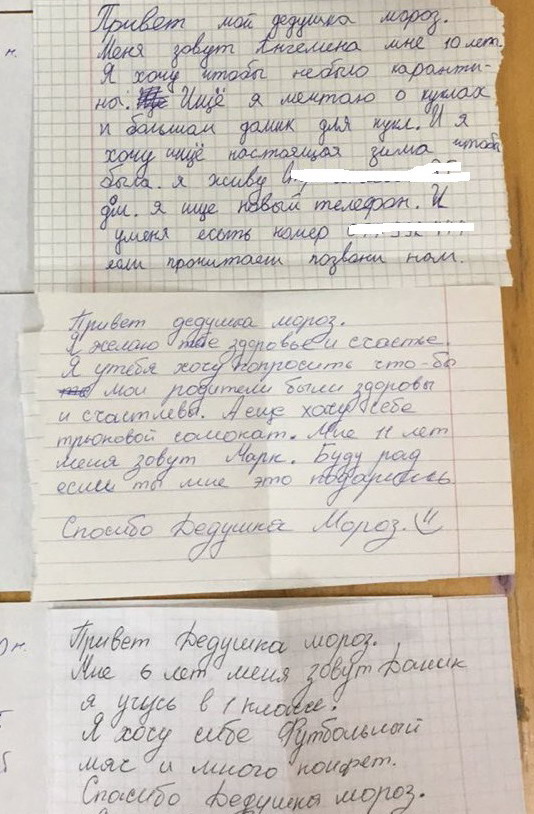 Привет мой дедушка мороз.
Меня зовут Ангелина мне 10 лет.
Я хочу чтобы небыло каранти-
на. Ищё я мечтаю о куклах
и большом домик для кукл. И я
хочу ищё настоящая зима чтобы
была. я живу
дм. я ище новый телефон. И
уменя есыть номер
если прочитаеш позвони нам.
Привет дедушка мороз.
Я желаю тебе здоровье и счастье.
Я утебя хочу попросить что-бы
мои родители были здоровы
и счастлевы. А еще хочу себе
трюковой самокат. Мне 11 лет
меня зовут Марк. Буду рад
если ты мне это подаришь
Спосибо Дедушка Мороз.
Привет Дедушка мороз.
Мне 6 лет меня зовут Даник
я учусь в 1 классе.
Я хочу себе Футбольный
мяч и много конфет.
Спосибо Дедушка мороз.